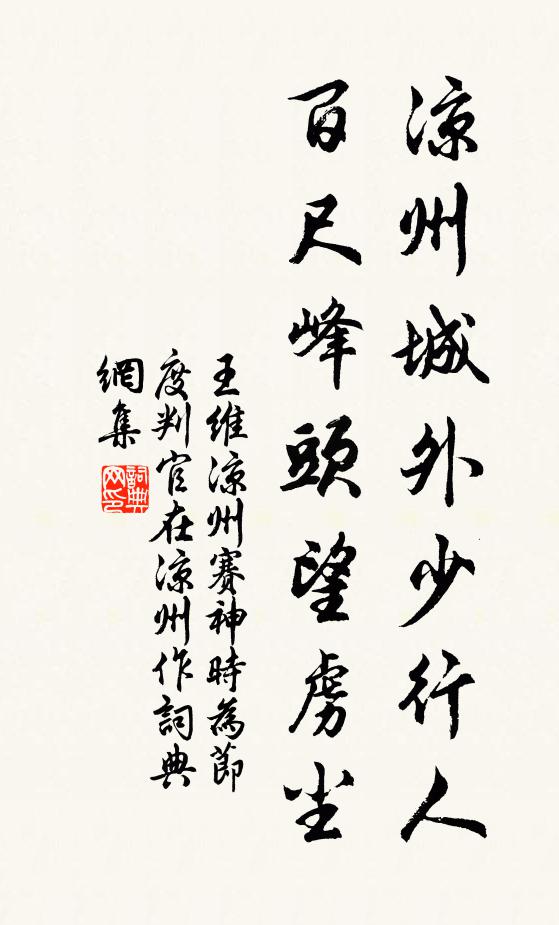 凉州城外少行人
百尺峰頭望虜尘
王維凉州賽神時為節
度判官在凉州作詞典
網集
詞典
网印